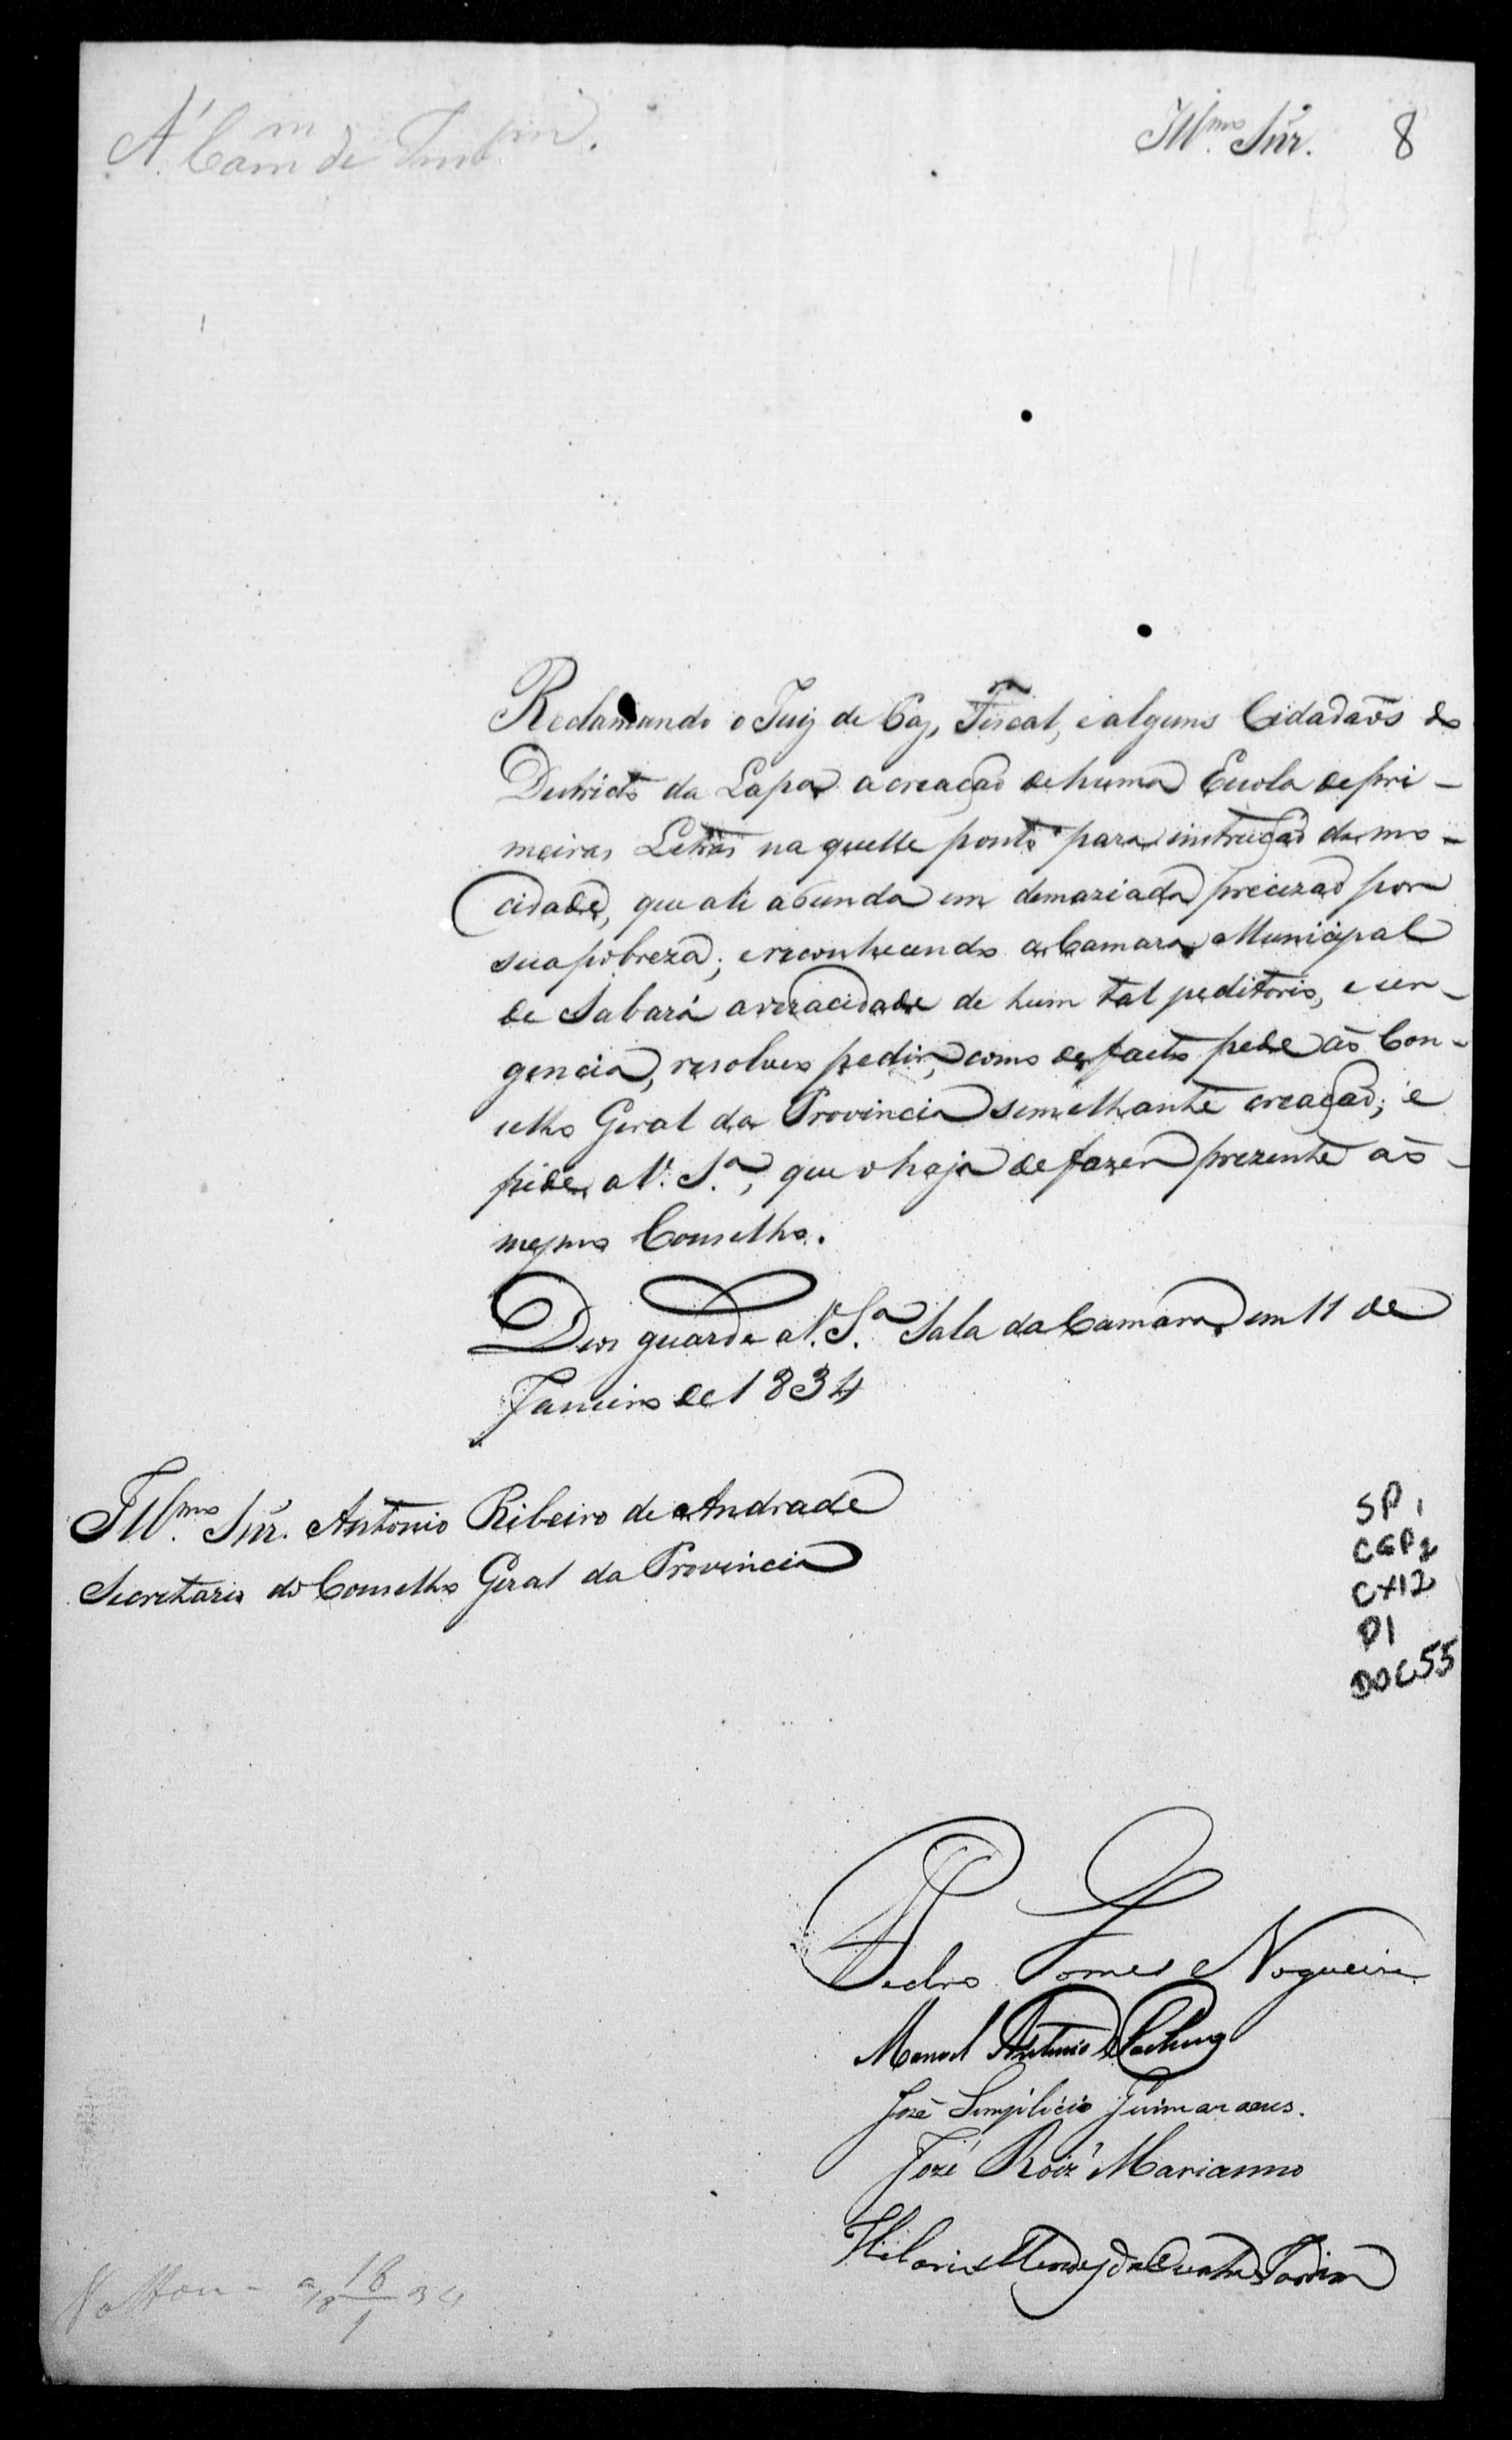 Ill.mo Snr. 8
Reclamando o Juiz de Paz, Fiscal, e alguns Cidadaõs do
Destricto da Lapa a creaçaõ de huma Escola de pri-
meiras Letras na quelle ponto para instruçaõ da mo-
cidade, que ali abunda em demaziada precizaõ por
sua pobreza; e reconhecendo a Camara Municipal
de Sabará a veracidade de hum tal peditorio, e ur-
gencia, resolveo pedir, como de facto pede aõ Con-
selho Geral da Provincia semelhante creaçaõ; e
pede a V. S.a, que o haja de fazer prezente aõ
mesmo Conselho.
Deos guarde a V. S.a Sala da Camara em 11 de
Janeiro de 1834
Ill.mo Snr. Antonio Ribeiro de Andrade
Secretario do Conselho Geral da Provincia
SP1
CGP2
CX12
P1
DOC55
Pedro Gomes Nogueira
Manoel Antonio
José Simplicio Guimaraens.
Jozé Roiz' Marianno
Hilario Mendes da Cunha